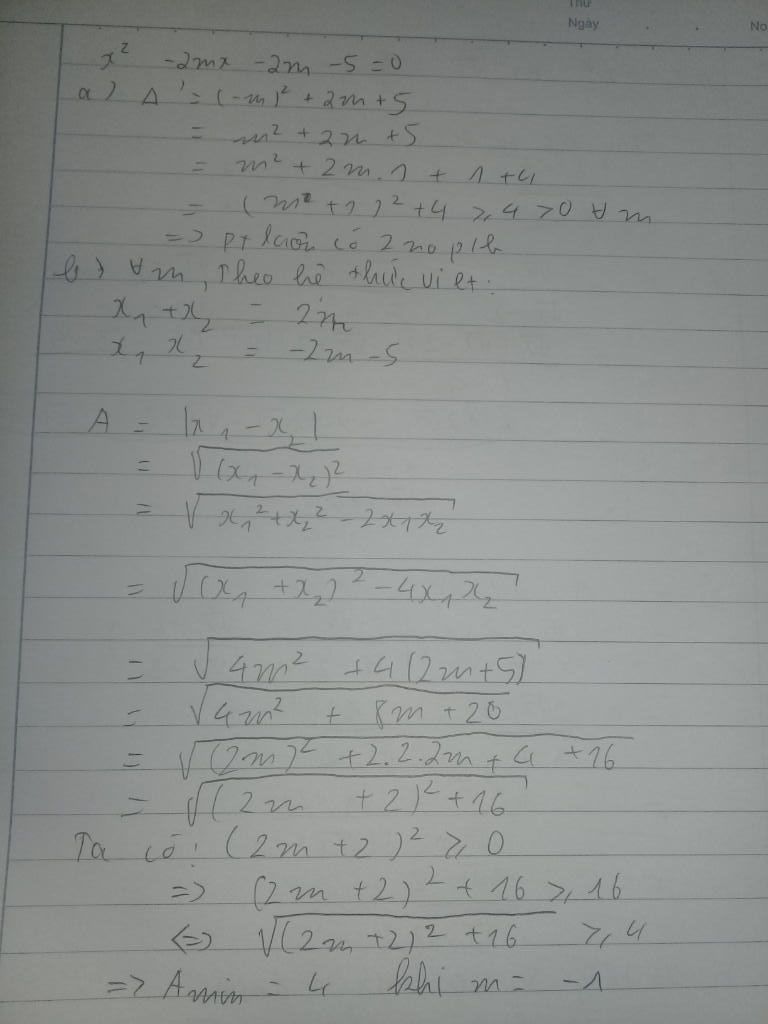 Thứ
Ngày
No
x² - 2mx - 2m - 5 = 0
a) Δ' = (-m)² + 2m + 5
= m² + 2m + 5
= m² + 2m.1 + 1 + 4
= (m + 1)² + 4 ≥ 4 > 0 ∀m
=> pt luôn có 2 no p/b
b) ∀m, Theo hê thức vi et:
x₁ + x₂ = 2m
x₁ x₂ = -2m - 5
A = |x₁ - x₂|
= √((x₁ - x₂)²)
= √(x₁² + x₂² - 2x₁x₂)
= √((x₁ + x₂)² - 4x₁x₂)
= √(4m² + 4(2m+5))
= √(4m² + 8m + 20)
= √((2m)² + 2.2.2m + 4 + 16)
= √((2m + 2)² + 16)
Ta có: (2m + 2)² ≥ 0
=> (2m + 2)² + 16 ≥ 16
<=> √((2m+2)² + 16) ≥ 4
=> Amin = 4 khi m = -1